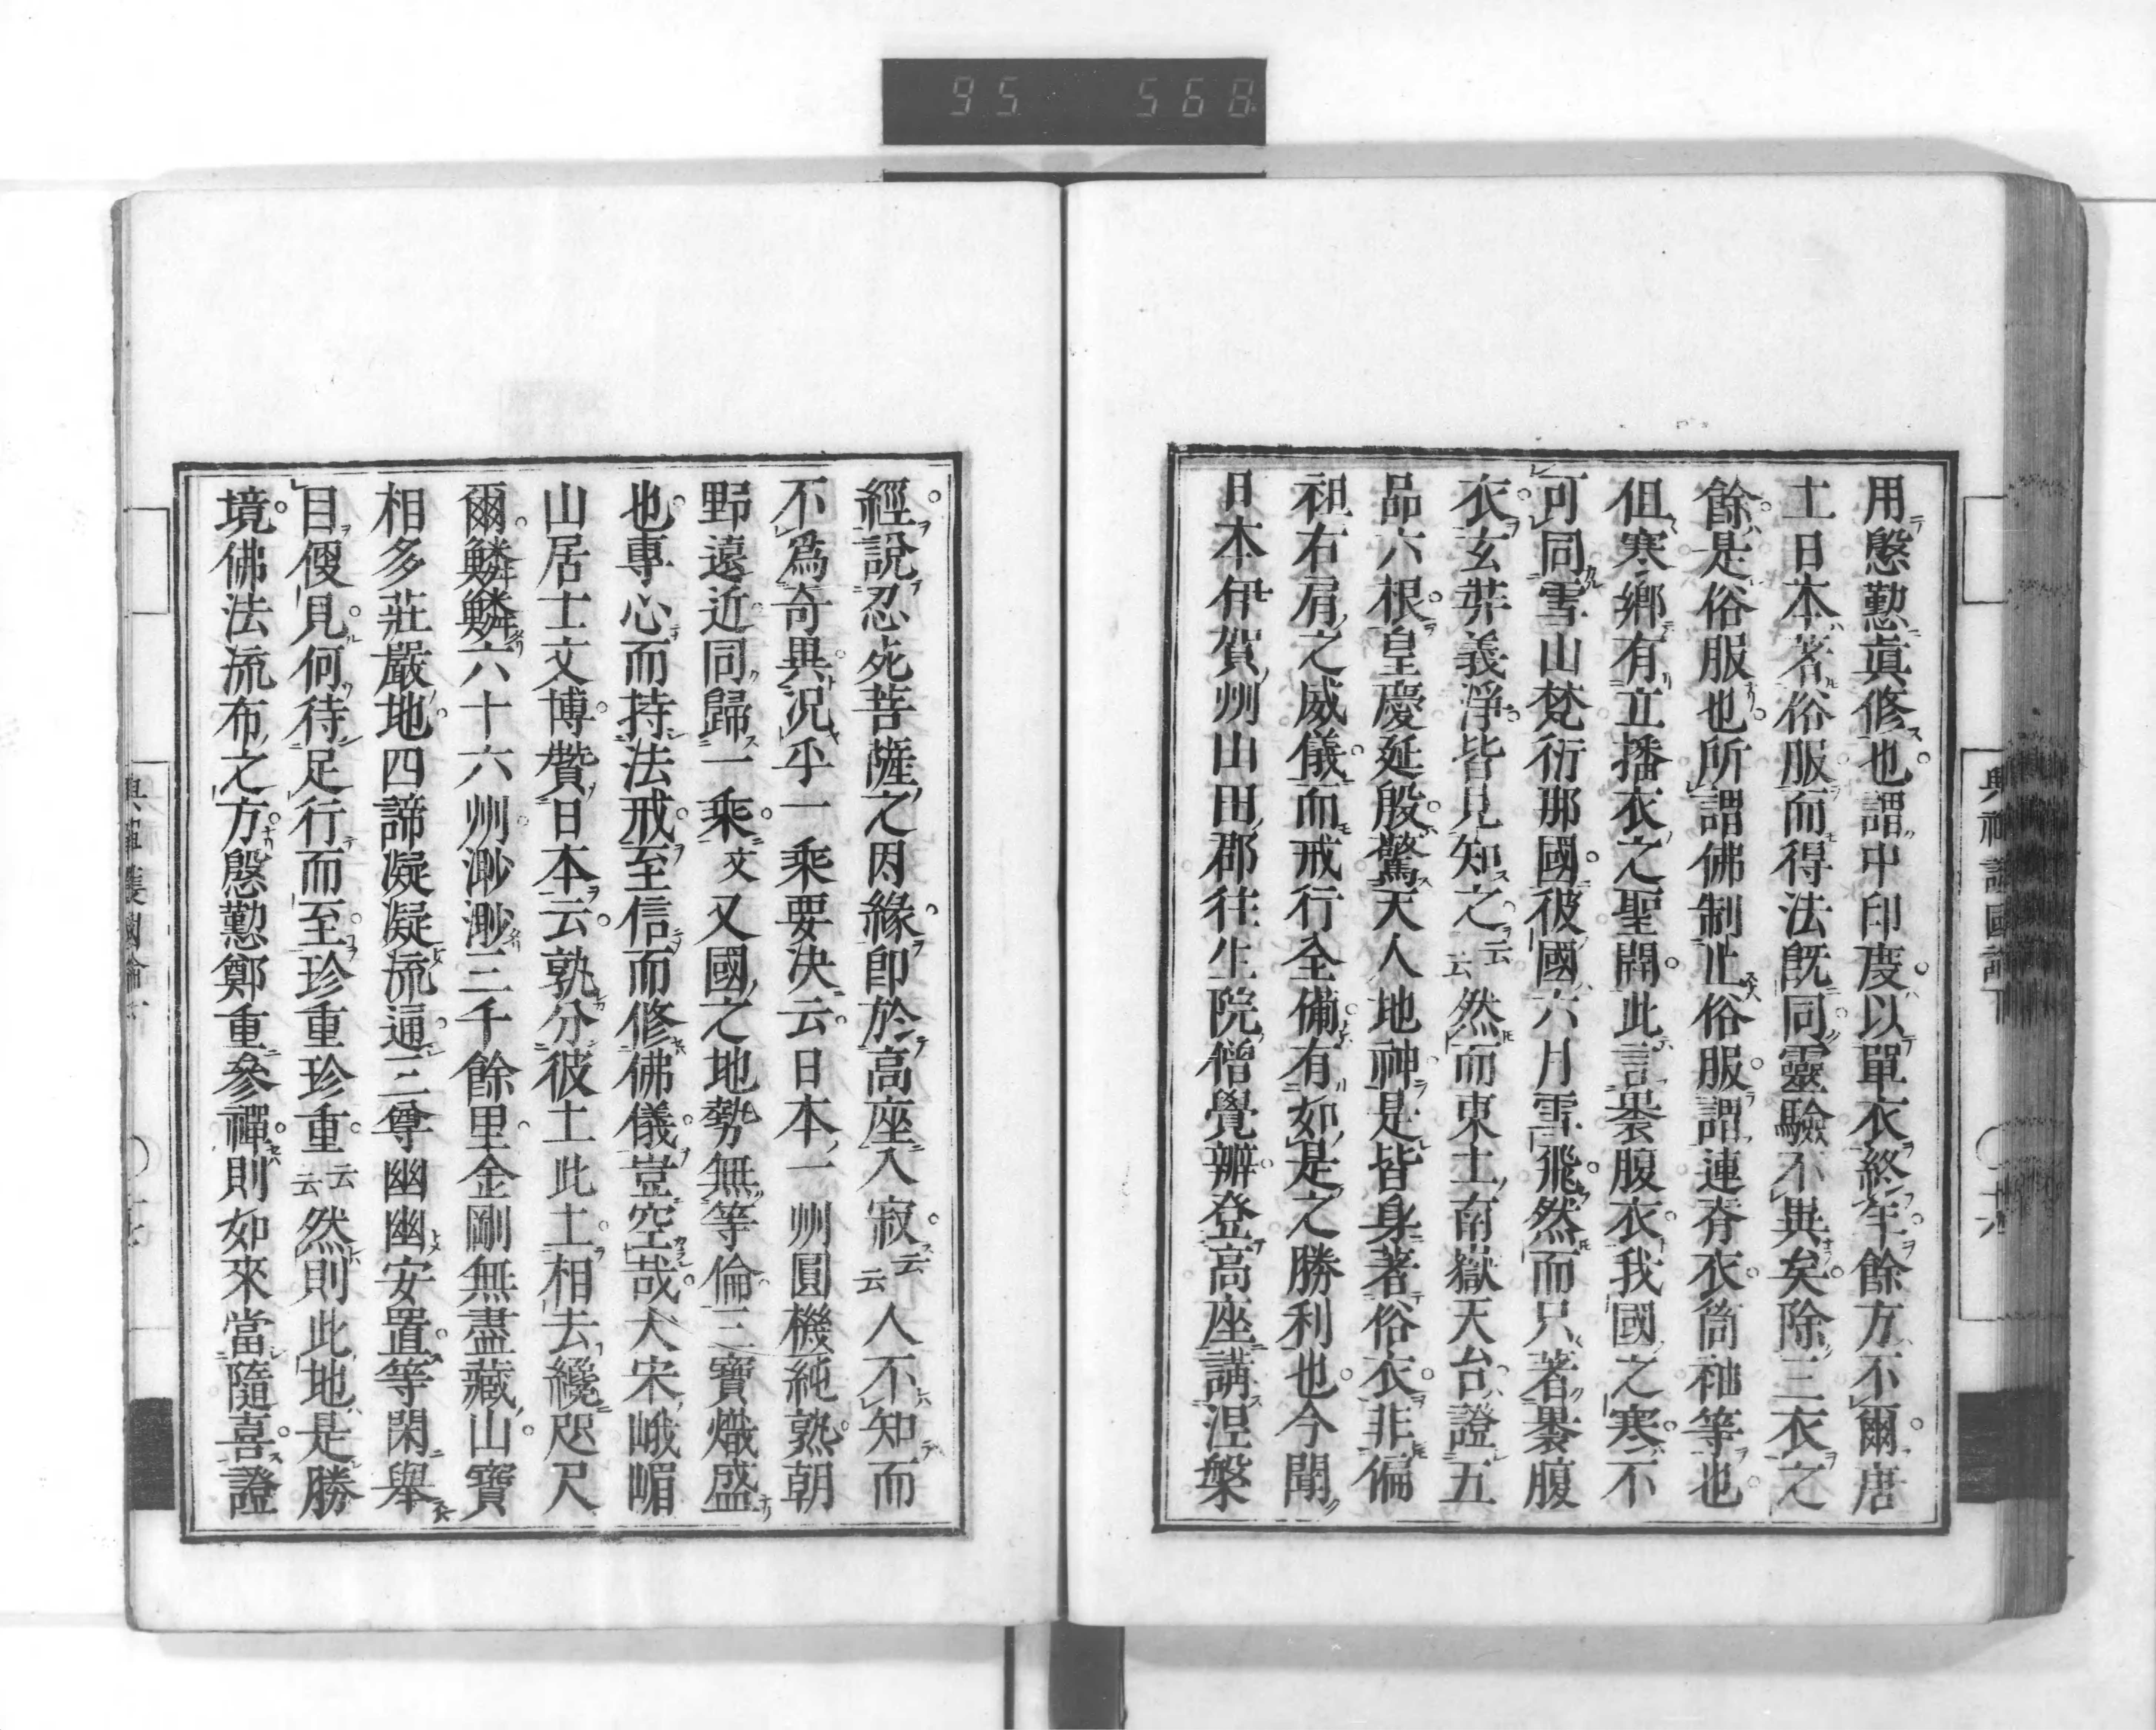 95 568
用慇懃眞修也謂中印度以單衣終年餘方不爾唐
土日本著俗服而得法既同靈驗不異矣除三衣之
餘是俗服也所謂佛制止俗服謂連脊衣筒袖等也
但寒鄉有立播衣之聖開此言裹腹衣我國之寒不
可同雪山梵衍那國彼國六月雪飛然而只著裹腹
衣玄弉義淨皆見知之云云然而東土南嶽天台證五
品六根皇慶延殷驚天人地神是皆身著俗衣非偏
袒右肩之威儀而戒行全備有如是之勝利也今聞
日本伊賀州山田郡往生院僧覺辨登高座講涅槃
經說忍死菩薩之因緣即於高座入寂云云人不知而
不爲奇異況乎一乘要決云日本一州圓機純熟朝
野遠近同歸一乘文又國之地勢無等倫三寶熾盛
也專心而持法戒至信而修佛儀豈空哉大宋峨嵋
山居士文博贊日本云孰分彼土此土相去纔咫尺
爾鱗鱗六十六州渺渺三千餘里金剛無盡藏山寶
相多莊嚴地四諦凝凝流通三尊幽幽安置等閑舉
目便見何待足行而至珍重珍重云云然則此地是勝
境佛法流布之方慇懃鄭重參禪則如來當隨喜證